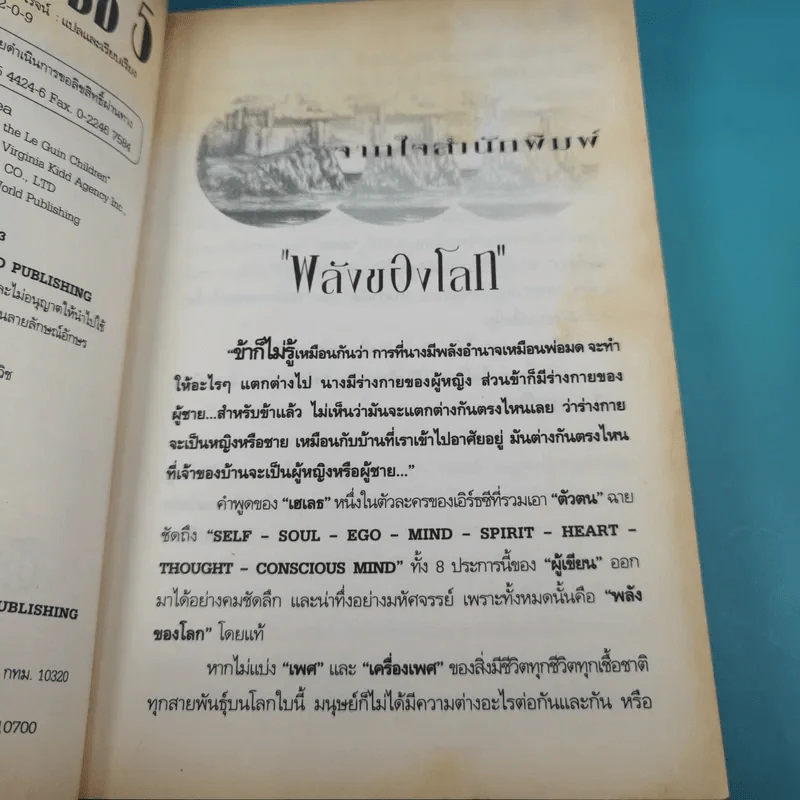 5
: แปลและเรียบเรียง
2-0-9
ยดำเนินการขอลิขสิทธิ์ผ่านทาง
4424-6 Fax. 0-2246 7584
ea
the Le Guin Children"
Virginia Kidd Agency Inc.,
CO., LTD
World Publishing
3
D PUBLISHING
ละไม่อนุญาตให้นำไปใช้
นลายลักษณ์อักษร
วิช
UBLISHING
กทม. 10320
10700
จากใจสำนักพิมพ์
"พลังของโลก"
"ข้าก็ไม่รู้เหมือนกันว่า การที่นางมีพลังอำนาจเหมือนพ่อมด จะทำ
ให้อะไรๆ แตกต่างไป นางมีร่างกายของผู้หญิง ส่วนข้าก็มีร่างกายของ
ผู้ชาย...สำหรับข้าแล้ว ไม่เห็นว่ามันจะแตกต่างกันตรงไหนเลย ว่าร่างกาย
จะเป็นหญิงหรือชาย เหมือนกับบ้านที่เราเข้าไปอาศัยอยู่ มันต่างกันตรงไหน
ที่เจ้าของบ้านจะเป็นผู้หญิงหรือผู้ชาย..."
คำพูดของ "เฮเลธ" หนึ่งในตัวละครของเอิร์ธซีที่รวมเอา "ตัวตน" ฉาย
ชัดถึง "SELF – SOUL – EGO – MIND – SPIRIT – HEART –
THOUGHT – CONSCIOUS MIND" ทั้ง 8 ประการนี้ของ "ผู้เขียน" ออก
มาได้อย่างคมชัดลึก และน่าทึ่งอย่างมหัศจรรย์ เพราะทั้งหมดนั้นคือ "พลัง
ของโลก" โดยแท้
หากไม่แบ่ง "เพศ" และ "เครื่องเพศ" ของสิ่งมีชีวิตทุกชีวิตทุกเชื้อชาติ
ทุกสายพันธุ์บนโลกใบนี้ มนุษย์ก็ไม่ได้มีความต่างอะไรต่อกันและกัน หรือ